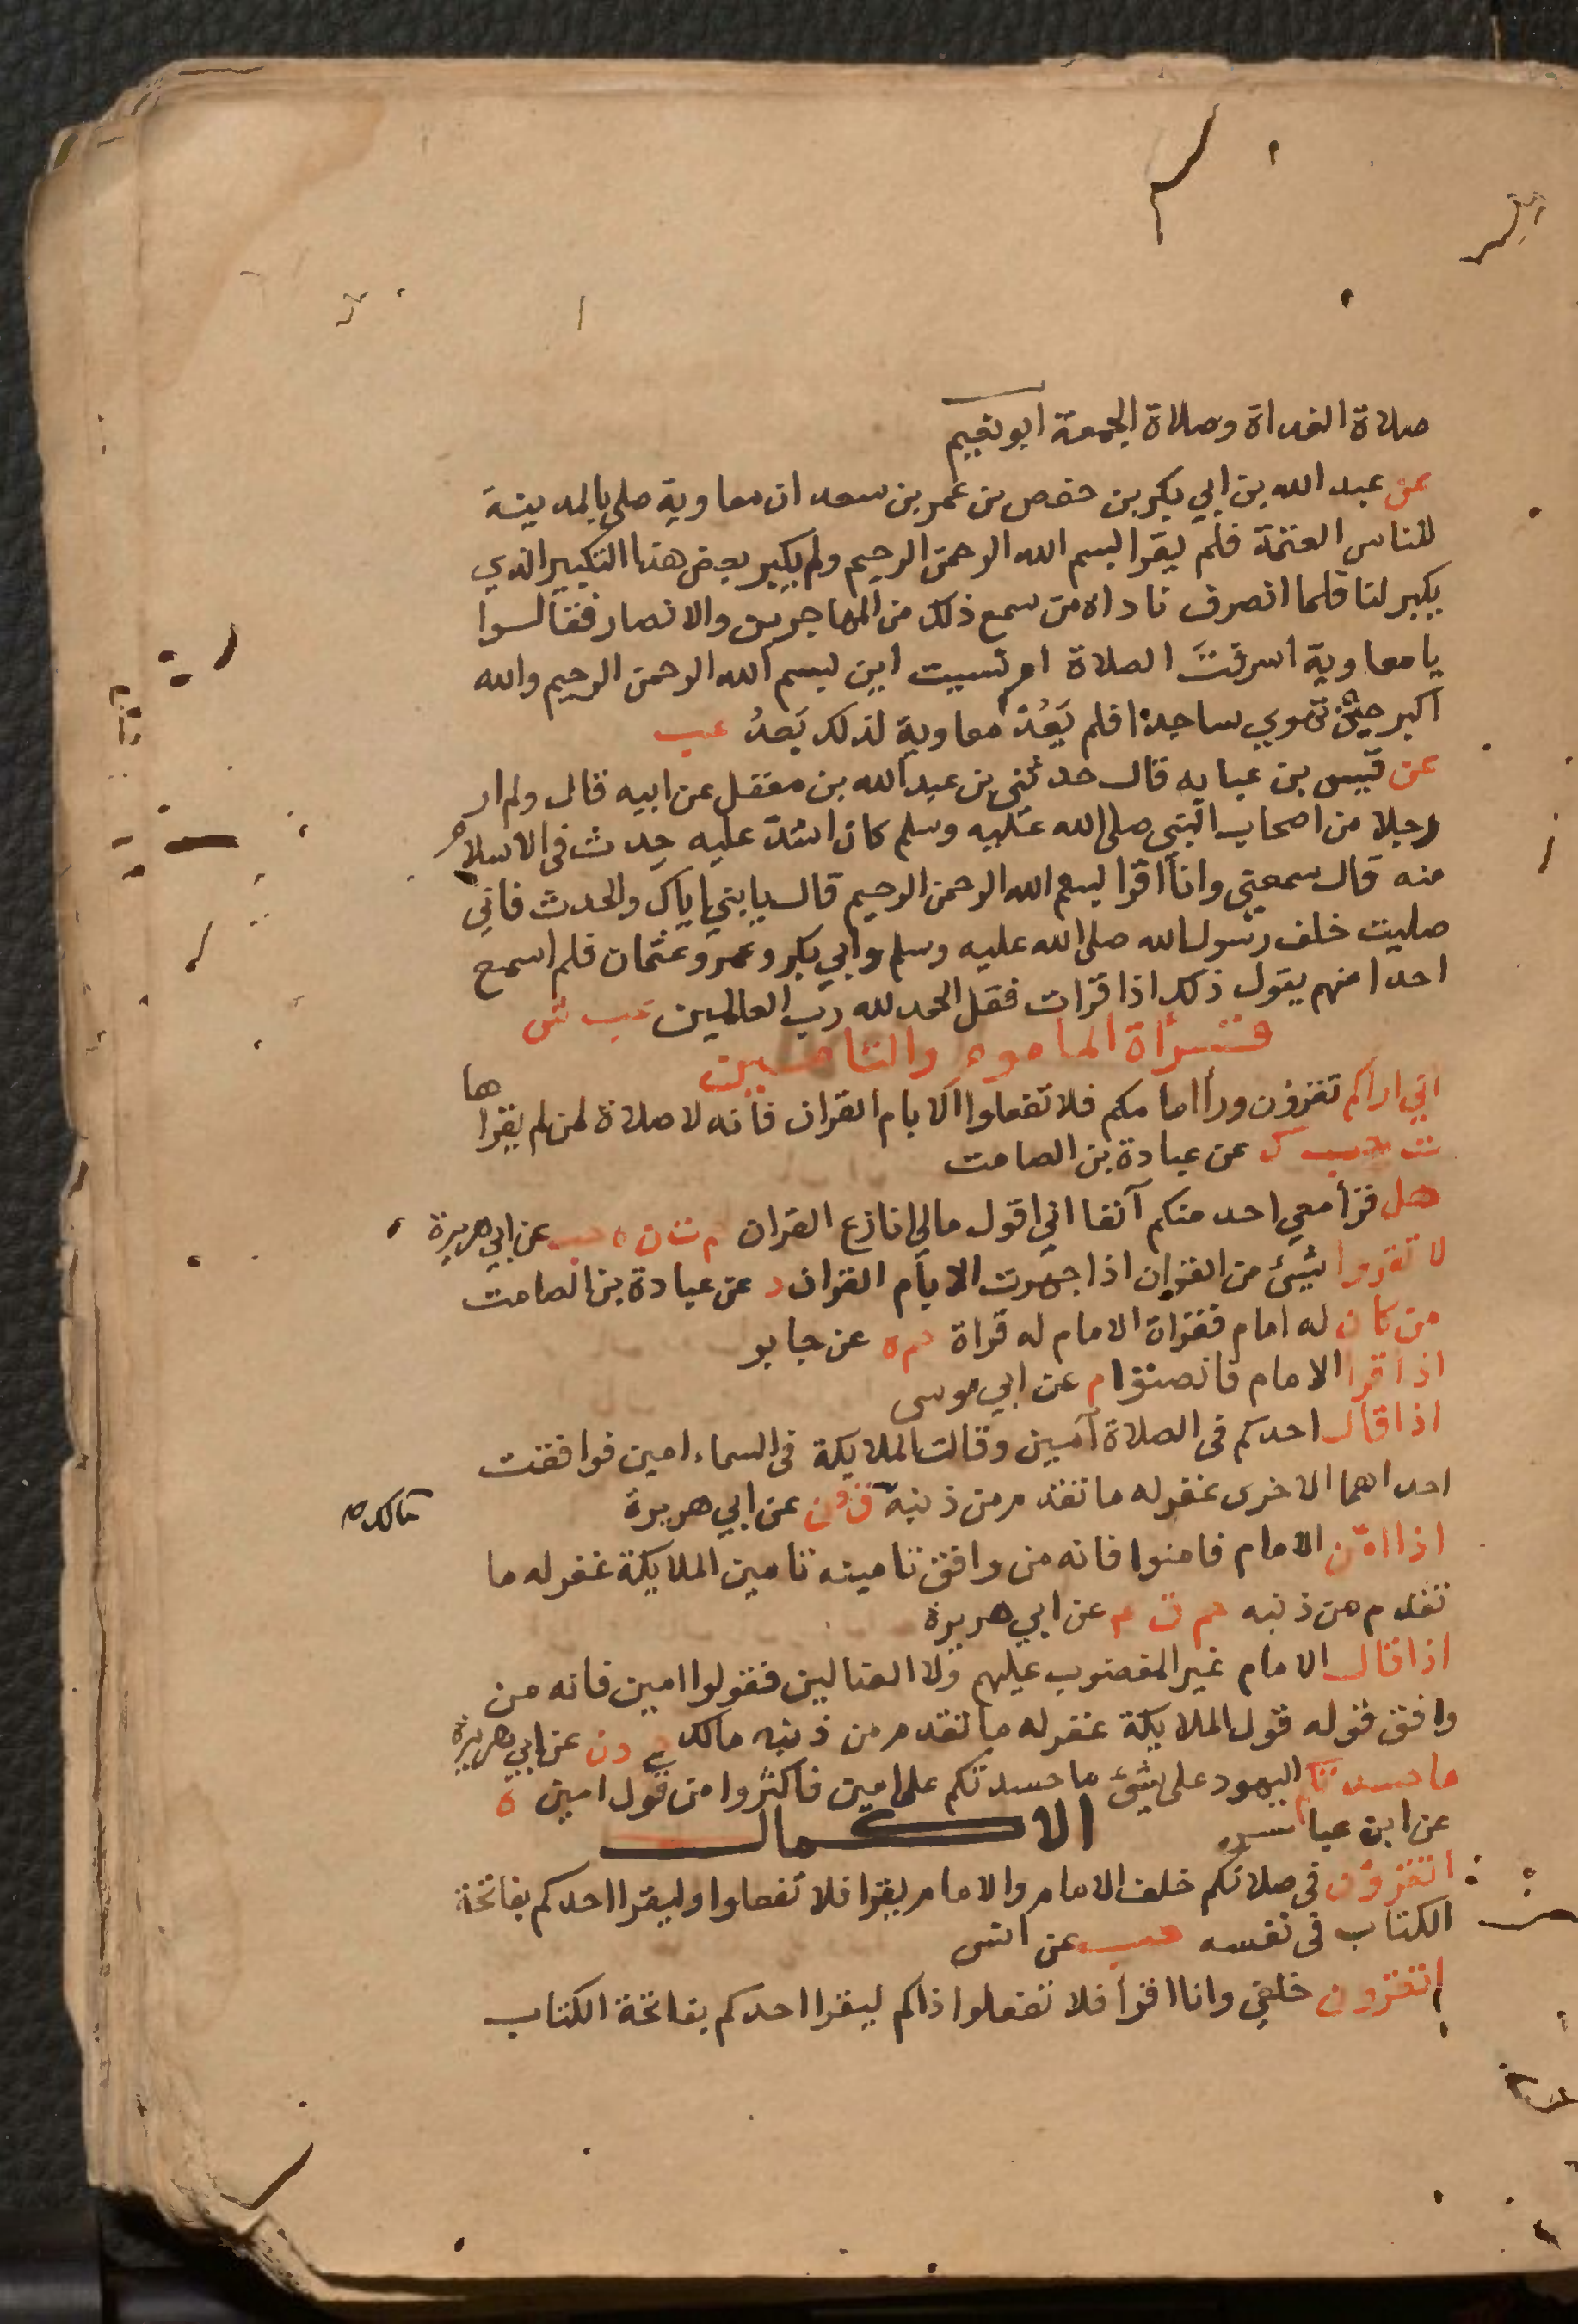 صلاة الغداة وصلاة الجمعة ابو نعيم
عن عبد الله بن ابي بكر بن حفص بن عمر بن سعد ان معاوية صلى بالمدينة
للناس العتمة فلم يقرا بسم الله الرحمن الرحيم ولم يكبر بعض هذا التكبير الذي
يكبر لنا فلما انصرف ناداه من سمع ذلك من المهاجرين والانصار فقالوا
يا معاوية اسرقتَ الصلاة ام نسيت اين بسم الله الرحمن الرحيم والله
اكبر حين تهوي ساجدا فلم يَعُد معاوية لذلك بَعدُ عب
عن قيس بن عبايه قال حدثني بن عبد الله بن مغفل عن ابيه قال ولم ار
رجلا من اصحاب النبي صلى الله عليه وسلم كان اشدّ عليه حدث في الاسلام
منه قال سمعني وانا اقرا بسم الله الرحمن الرحيم قال يا بني اياك والحدث فاني
صليت خلف رسول الله صلى الله عليه وسلم وابي بكر وعمر وعثمان فلم اسمع
احدا منهم يقول ذلك اذا قرات فقل الحمد لله رب العالمين عب ش
قراة الماموم والتامين
اني اراكم تقرؤن ورأ امامكم فلا تفعلوا الا بام القران فانه لا صلاة لمن لم يقرا ها
ت حب ك عن عبادة بن الصامت
هل قرأ معي احد منكم آنفا اني اقول مالي انازع القران م ت ن ه حب عن ابي هريرة
لا تقروا بشئ من القران اذا جهرت الا بام القران د عن عبادة بن الصامت
من كان له امام فقراة الامام له قراة حم ه عن جابر
اذا قرا الامام فانصتوا م عن ابي موسى
اذا قال احدكم في الصلاة آمين وقالت الملايكة في السماء امين فوافقت
احداهما الاخرى غفر له ما تقدم من ذنبه ق ن عن ابي هريرة
مالك
اذا امّن الامام فامنوا فانه من وافق تامينه تامين الملايكة غفر له ما
تقدم من ذنبه حم ق ع عن ابي هريرة
اذا قال الامام غير المغضوب عليهم ولا الضالين فقولوا امين فانه من
وافق قوله قول الملايكة غفر له ما تقدم من ذنبه مالك خ د ن عن ابي هريرة
ما حسدتكم اليهود على شئ ما حسدتكم على امين فاكثروا من قول امين ه
عن ابن عباس
الاكمال
اتقرؤن في صلاتكم خلف الامام والامام يقرا فلا تفعلوا وليقرا احدكم بفاتحة
الكتاب في نفسه حب عن انس
اتقرون خلفي وانا اقرا فلا تفعلوا ذاكم ليقرا احدكم بفاتحة الكتاب